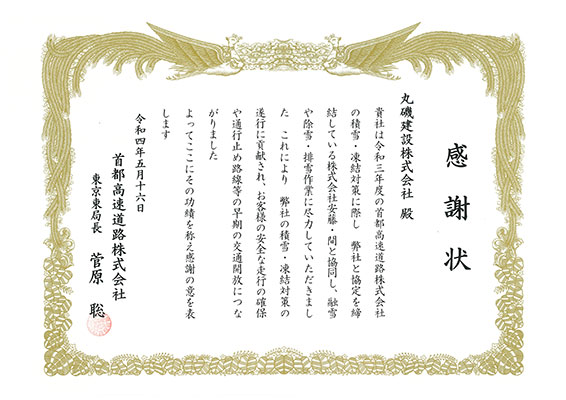 感謝状
丸磯建設株式会社 殿
貴社は令和三年度の首都高速道路株式会社
の積雪・凍結対策に際し 弊社と協定を締
結している株式会社安藤・間と協同し、融雪
や除雪・排雪作業に尽力していただきまし
た これにより 弊社の積雪・凍結対策の
遂行に貢献され、お客様の安全な走行の確保
や通行止め路線等の早期の交通開放につな
がりました
よってここにその功績を称え感謝の意を表
します
令和四年五月十六日
首都高速道路株式会社
東京東局長 菅原 聡